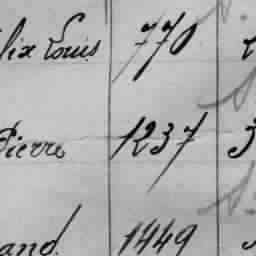 lix Louis 770
Pierre 1237 3
and. 1449